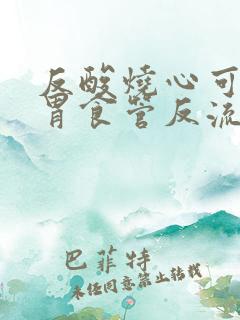 反酸燒心可
胃食管反流
巴菲特
未任同意禁止转载